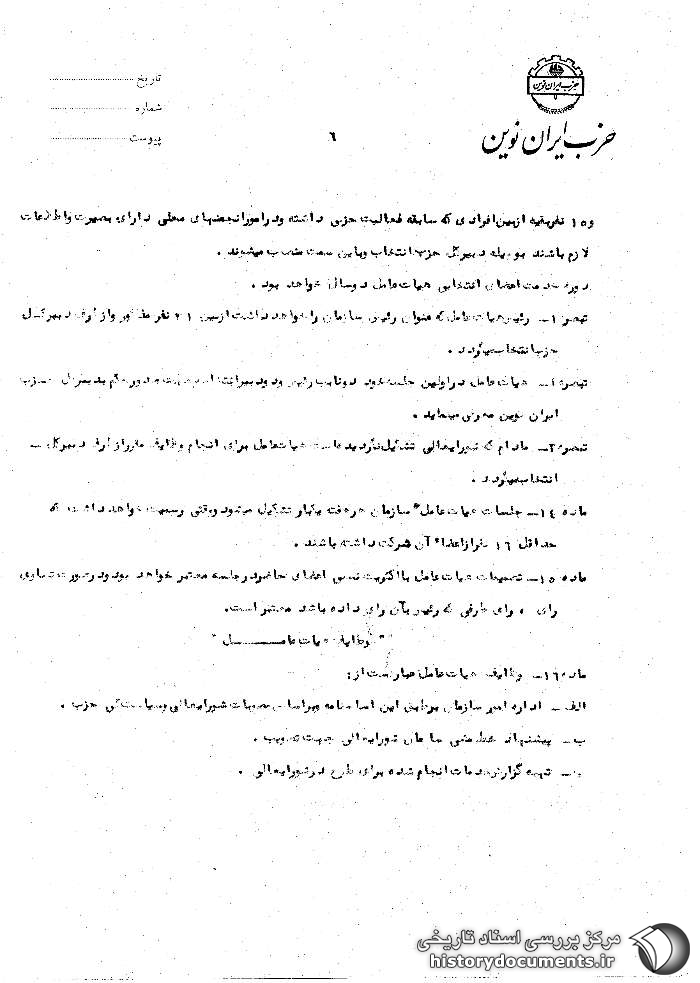 تاریخ
شماره
پیوست
حزب ایران نوین
حزب ایران نوین
۶
و ۱۵ نفر بقیه از بین افرادی که سابقه فعالیت حزبی داشته و در امور انجمنهای محلی دارای بصیرت و اطلاعات
لازم باشند بوسیله دبیرکل حزب انتخاب و باین سمت منصوب میشوند .
دوره خدمت اعضای انتخابی هیات عامل دو سال خواهد بود .
تبصره ۱ــ رئیس هیات عامل که عنوان رئیس سازمان را خواهد داشت از بین ۲۱ نفر مذکور و از طرف دبیرکل
حزب انتخاب میگردد .
تبصره ــ هیات عامل در اولین جلسه خود دو نایب رئیس و دبیر
ایران نوین معرفی مینماید .
تبصره ۳ــ مادام که شورایعالی تشکیل نگردیده است هیات عامل برای انجام وظایف از طرف دبیرکل ــ
انتخاب میگردد .
ماده ۱۴ــ جلسات هیات عامل سازمان هر هفته یکبار تشکیل میشود و وقتی رسمیت خواهد داشت که
حداقل ۱۶ نفر از اعضاء آن شرکت داشته باشند .
ماده ۱۵ــ تصمیمات هیات عامل با اکثریت نسبی اعضای حاضر در جلسه معتبر خواهد بود و در صورت تساوی
رای ، رای طرفی که رئیس بآن رای داده باشد معتبر است .
" وظایف هیات عامـــل "
ماده ۱۶ــ وظایف هیات عامل عبارتست از :
الف ــ اداره امور سازمان برطبق این اساسنامه و براساس مصوبات شورایعالی و سیاست کلی حزب .
ب ــ پیشنهاد خط مشی سازمان شورایعالی جهت تصویب .
ــ تهیه گزارش خدمات انجام شده برای طرح در شورایعالی .
مرکز بررسی اسناد تاریخی
historydocuments.ir